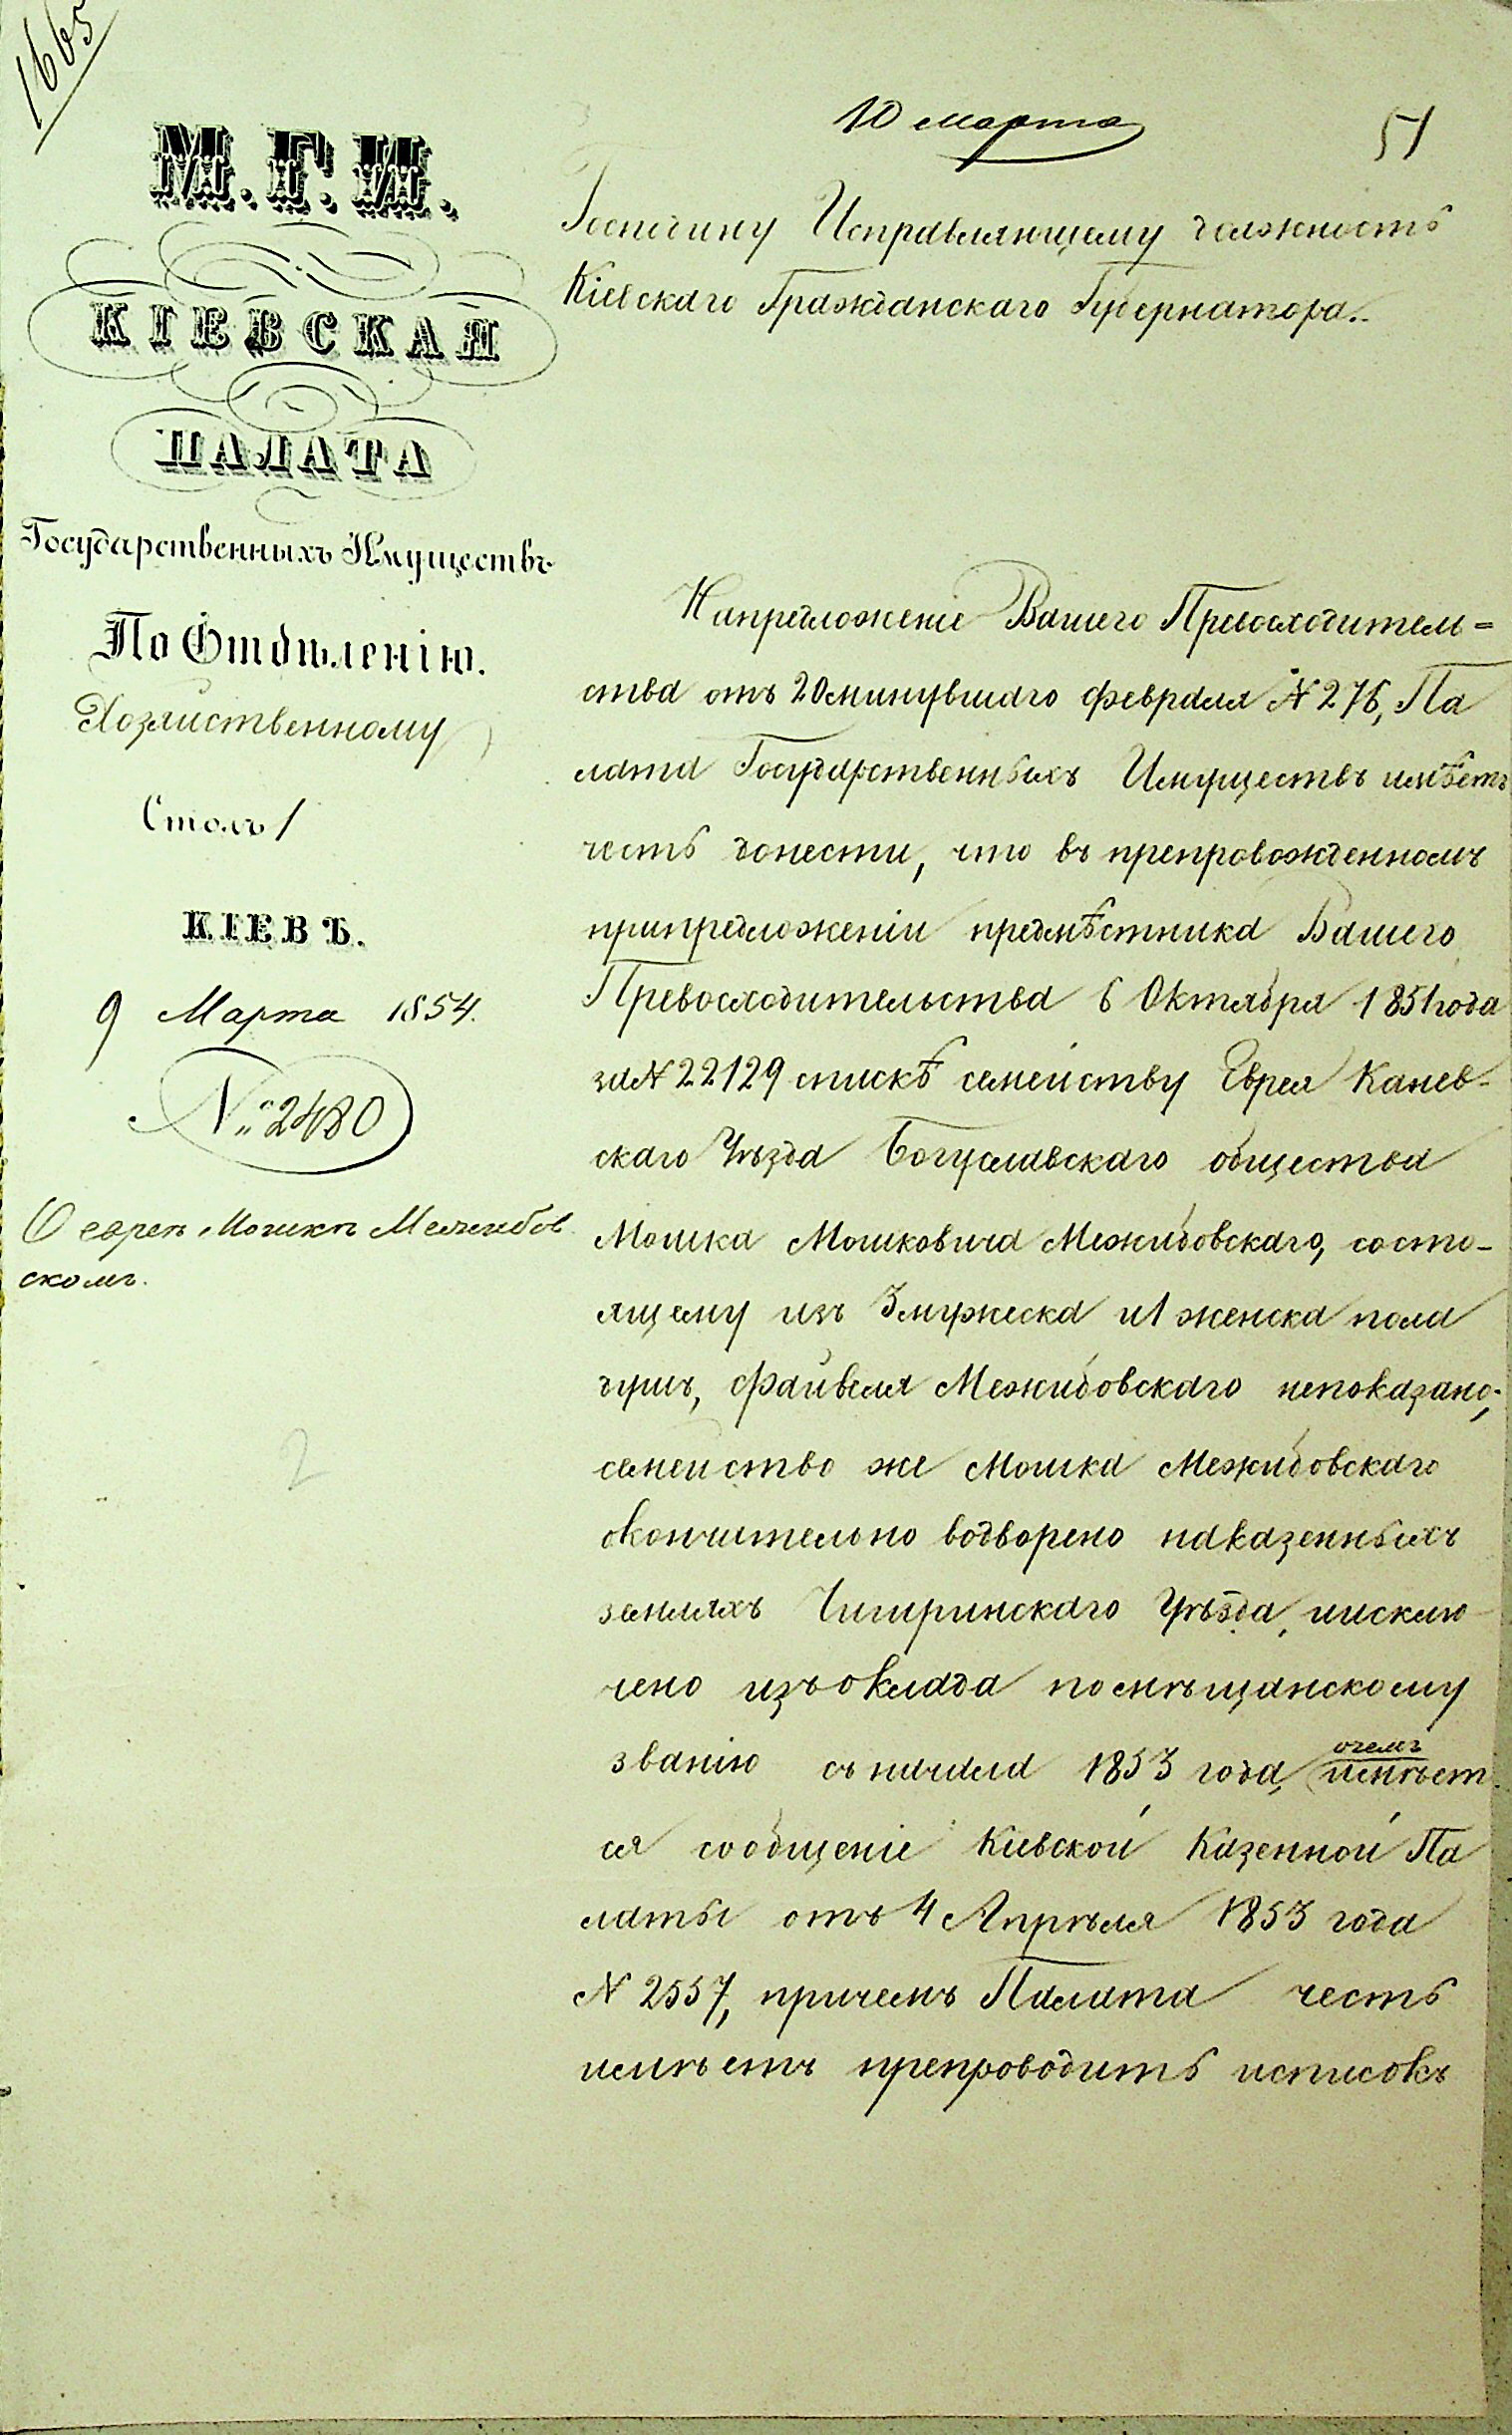 1665
10 Марта
51
М.Г.И.
КІЕВСКАЯ
ПАЛАТА
Государственныхъ Имуществъ
По Отдѣленію.
Хозяйственному
Столъ 1
КІЕВЪ.
9 Марта 1854.
№ 2480
О еврее Мошкѣ Межибов
скомъ.
2
Господину Исправляющему должность
Кіевскаго Гражданскаго Губернатора.
Напредложеніе Вашего Превосходитель=
ства отъ 20 минувшаго февраля № 276, Па
лата Государственныхъ Имуществъ имѣетъ
честь донести, что въ препровожденномъ
припредложеніи предмѣстника Вашего
Превосходительства 6 Октября 1851 года
за № 22129 спискѣ семейству Еврея Канев-
скаго Уѣзда Богуславскаго общества
Мошка Мошковича Межибовскаго, состо-
ящему изъ 3 мужеска и 1 женска пола
душъ, Файвеля Межибовскаго непоказано;
семейство же Мошка Межибовскаго
окончительно водворено наказенныхъ
земляхъ Чигиринскаго Уѣзда, иисклю
чено изъ оклада помѣщанскому
званію съ начала 1853 года, очемъ имѣет
ся сообщеніе Кіевской Казенной Па
латы отъ 4 Апрѣля 1853 года
№ 2557, причемъ Палата честь
имѣетъ препроводить исписокъ